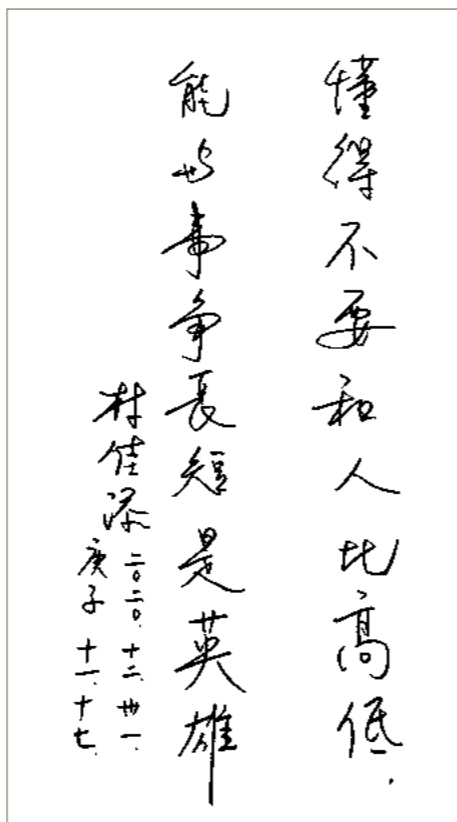 懂得不要和人比高低.
能与事争长短是英雄
村佳添
二〇二〇.十二.卅一.
庚子 十一.十七.